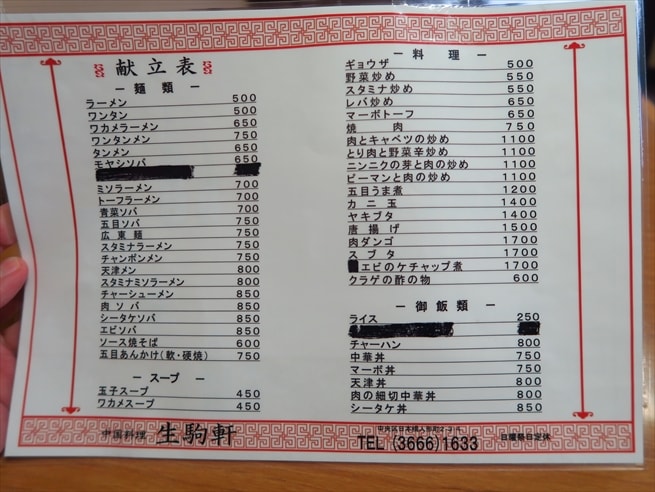 献立表
― 麺類 ―
ラーメン 500
ワンタン 500
ワカメラーメン 650
ワンタンメン 750
タンメン 650
モヤシソバ 650
ミソラーメン 700
トーフラーメン 700
青菜ソバ 700
五目ソバ 750
広東麺 750
スタミナラーメン 750
チャンポンメン 750
天津メン 800
スタミナミソラーメン 800
チャーシューメン 850
肉ソバ 850
シータケソバ 850
エビソバ 850
ソース焼そば 600
五目あんかけ(軟・硬焼) 750
― スープ ―
玉子スープ 450
ワカメスープ 450
― 料理 ―
ギョウザ 500
野菜炒め 550
スタミナ炒め 550
レバ炒め 650
マーボトーフ 650
焼肉 750
肉とキャベツの炒め 1100
とり肉と野菜辛炒め 1100
ニンニクの芽と肉の炒め 1100
ピーマンと肉の炒め 1100
五目うま煮 1200
カニ玉 1400
ヤキブタ 1400
唐揚げ 1500
肉ダンゴ 1700
スブタ 1700
エビのケチャップ煮 1700
クラゲの酢の物 600
― 御飯類 ―
ライス 250
チャーハン 800
中華丼 750
マーボ丼 750
天津丼 800
肉の細切中華丼 800
シータケ丼 850
中国料理 生駒軒
中央区日本橋人形町2-3-4
TEL (3666)1633
日曜祭日定休